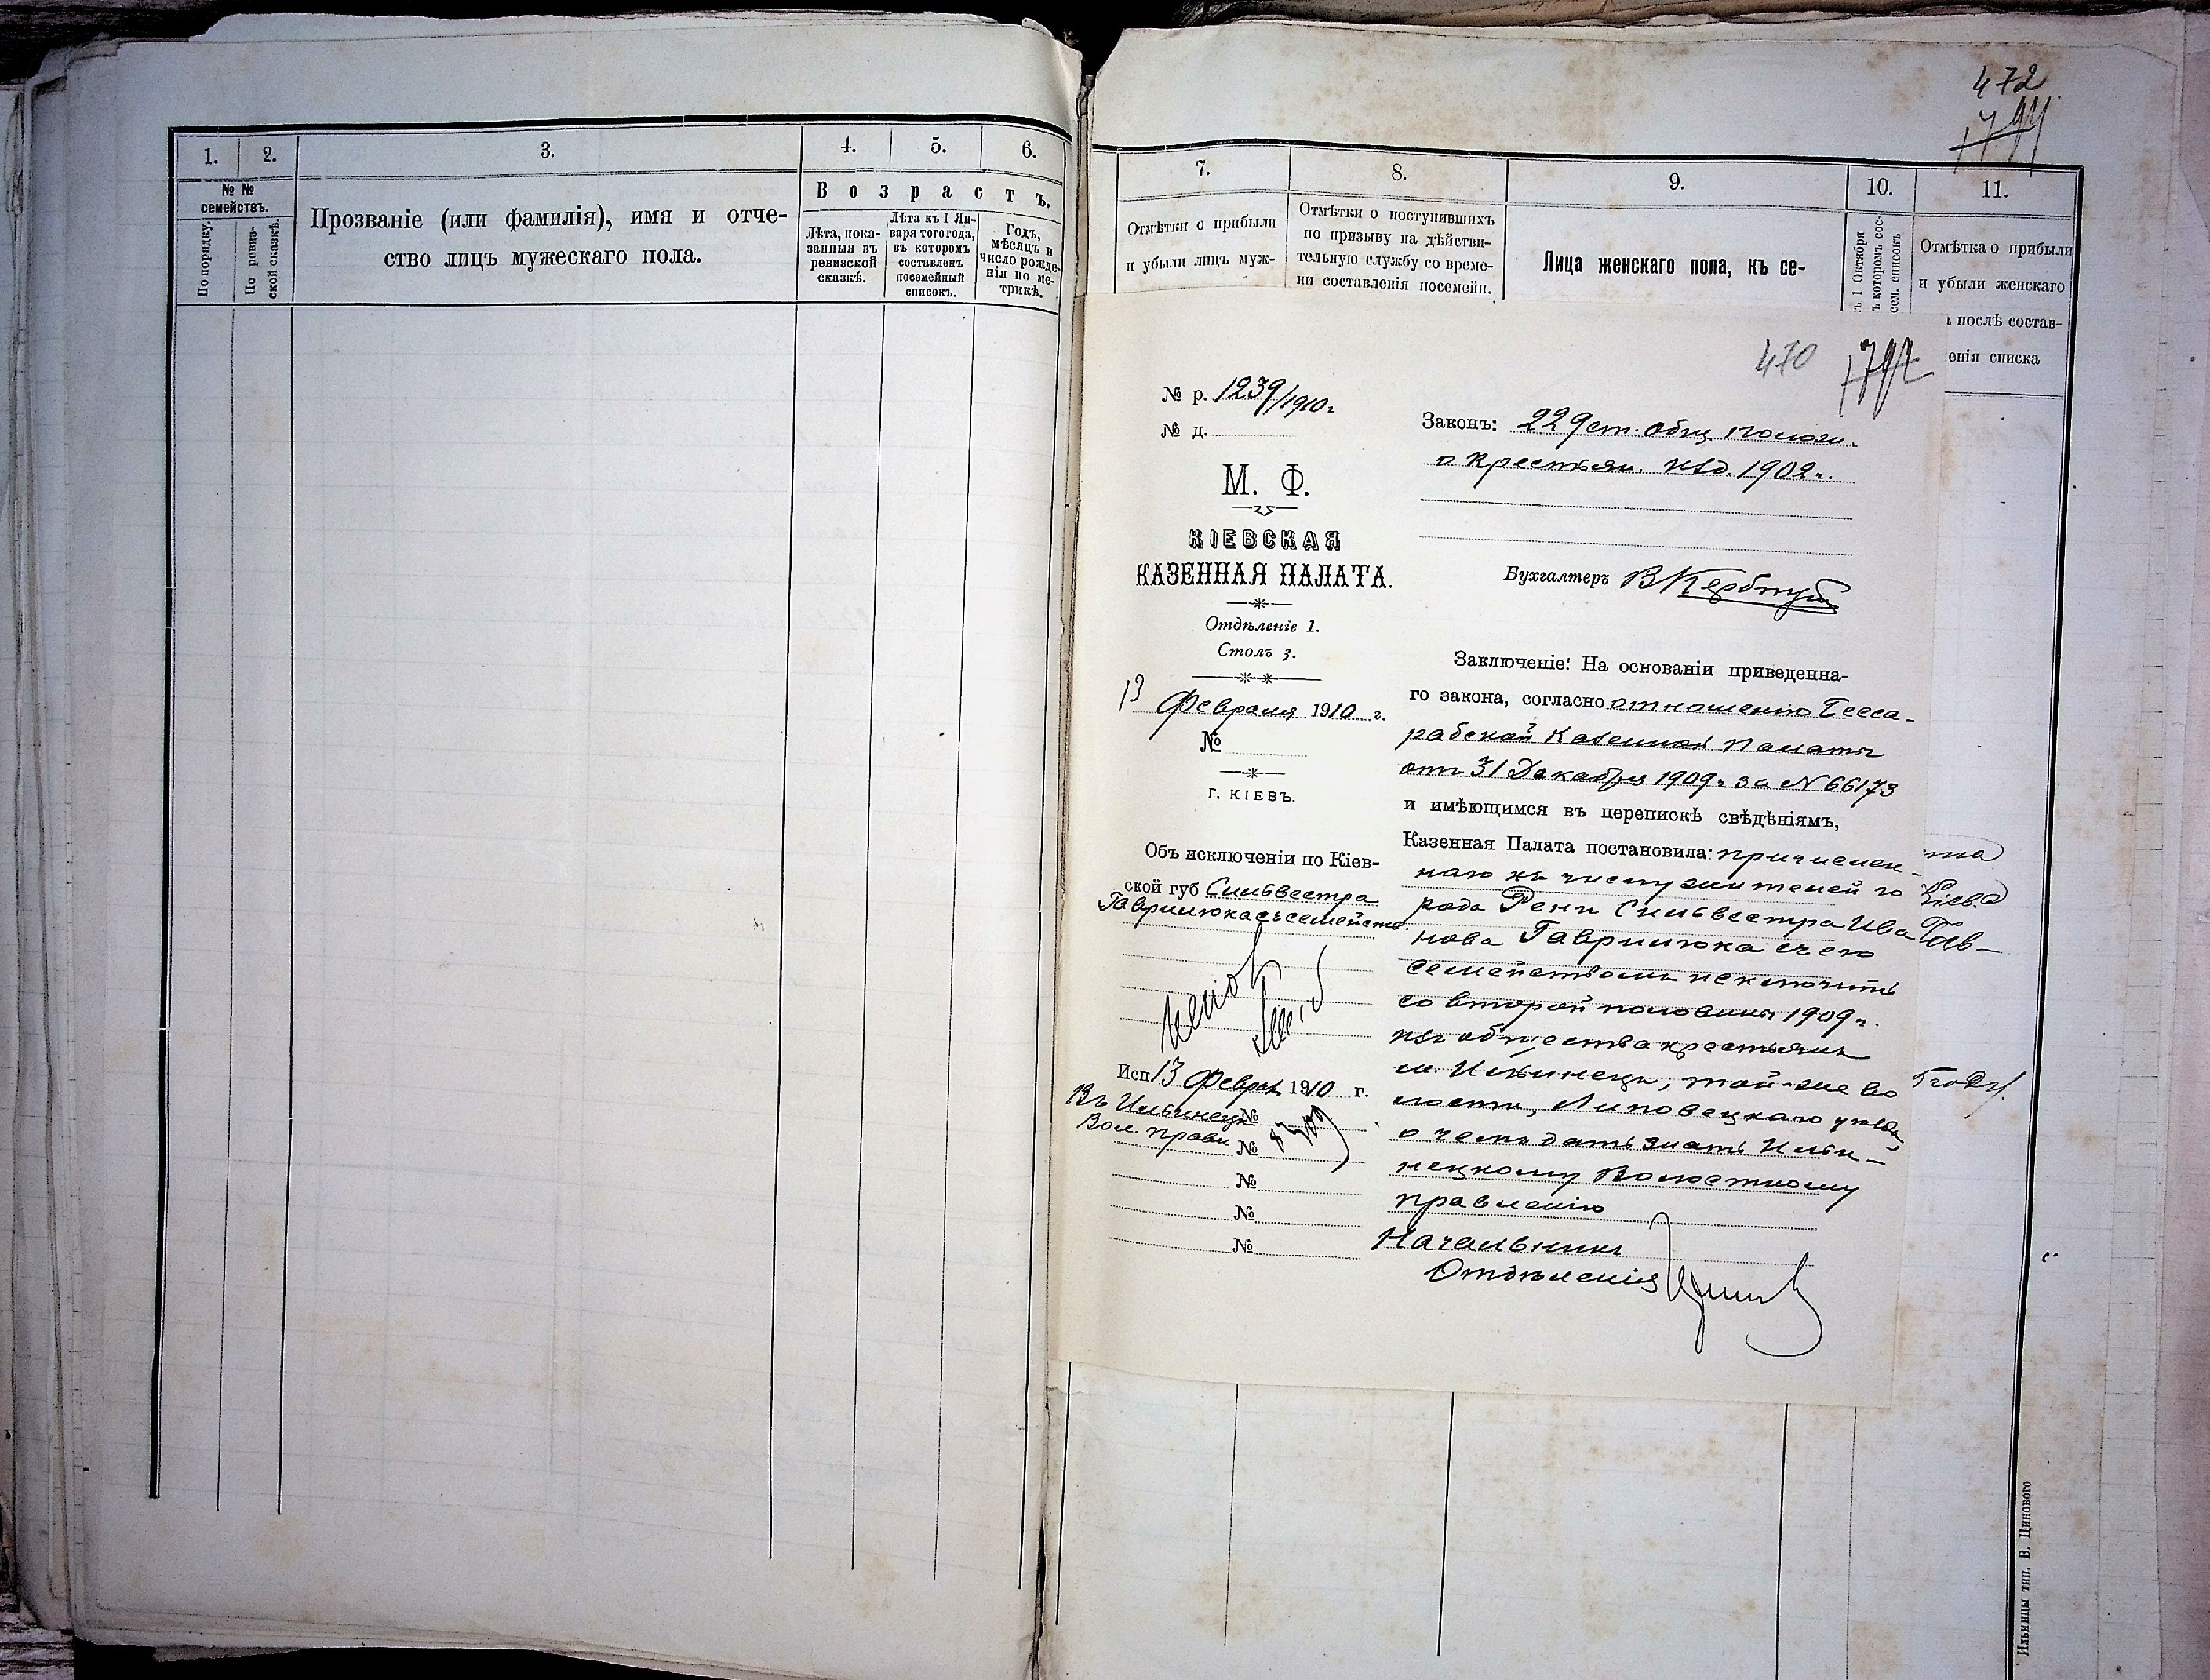 1.
2.
3.
4.
5.
6.
№ №
семействъ.
По порядку.
По ревиз-
ской сказкѣ.
Прозваніе (или фамилія), имя и отче-
ство лицъ мужескаго пола.
Возрастъ.
Лѣта, пока-
занныя въ
ревизской
сказкѣ.
Лѣта къ 1 Ян-
варя того года,
въ которомъ
составленъ
посемейный
списокъ.
Годъ,
мѣсяцъ и
число рожде-
нія по ме-
трикѣ.
472
7.
8.
9.
10.
11.
Отмѣтки о прибыли
и убыли лицъ муж-
Отмѣтки о поступившихъ
по призыву на дѣйстви-
тельную службу со време-
ни составленія посемейн.
Лица женскаго пола, къ се-
ъ 1 Октября
ъ которомъ сос-
сем. списокъ
Отмѣтка о прибыли
и убыли женскаго
послѣ состав-
енія списка
470
№ р. 1239/1910 г.
№ д.
М. Ф.
КІЕВСКАЯ
КАЗЕННАЯ ПАЛАТА.
Отдѣленіе 1.
Столъ 3.
13 Февраля 1910 г.
№
Г. КІЕВЪ.
Объ исключеніи по Кіев-
ской губ Сильвестра
Гаврилюка съ семейств.
Исп 13 Феврал 1910 г.
Въ Ильинецк №
Вол. правл №
№
№
№
Законъ: 229 ст. общ. полож.
о крестьян. изд. 1902 г.
Бухгалтеръ
Заключеніе: На основаніи приведенна-
го закона, согласно отношенію Бесса-
рабской Казенной Палаты
отъ 31 Декабря 1909 г за N 66173
и имѣющимся въ перепискѣ свѣдѣніямъ,
Казенная Палата постановила: причислен-
наго къ числу жителей го
рода Рени Сильвестра Ива
нова Гаврилюка съ его
семействомъ исключить
со второй половины 1909 г.
изъ общества крестьянъ
м. Ильинецъ, той-же во
лости, Липовецкаго уѣзда,
о чемъ дать знать Ильи-
нецкому Волостному
правленію
Начальникъ
Отдѣленія
Ильинцы тип. В. Цинового